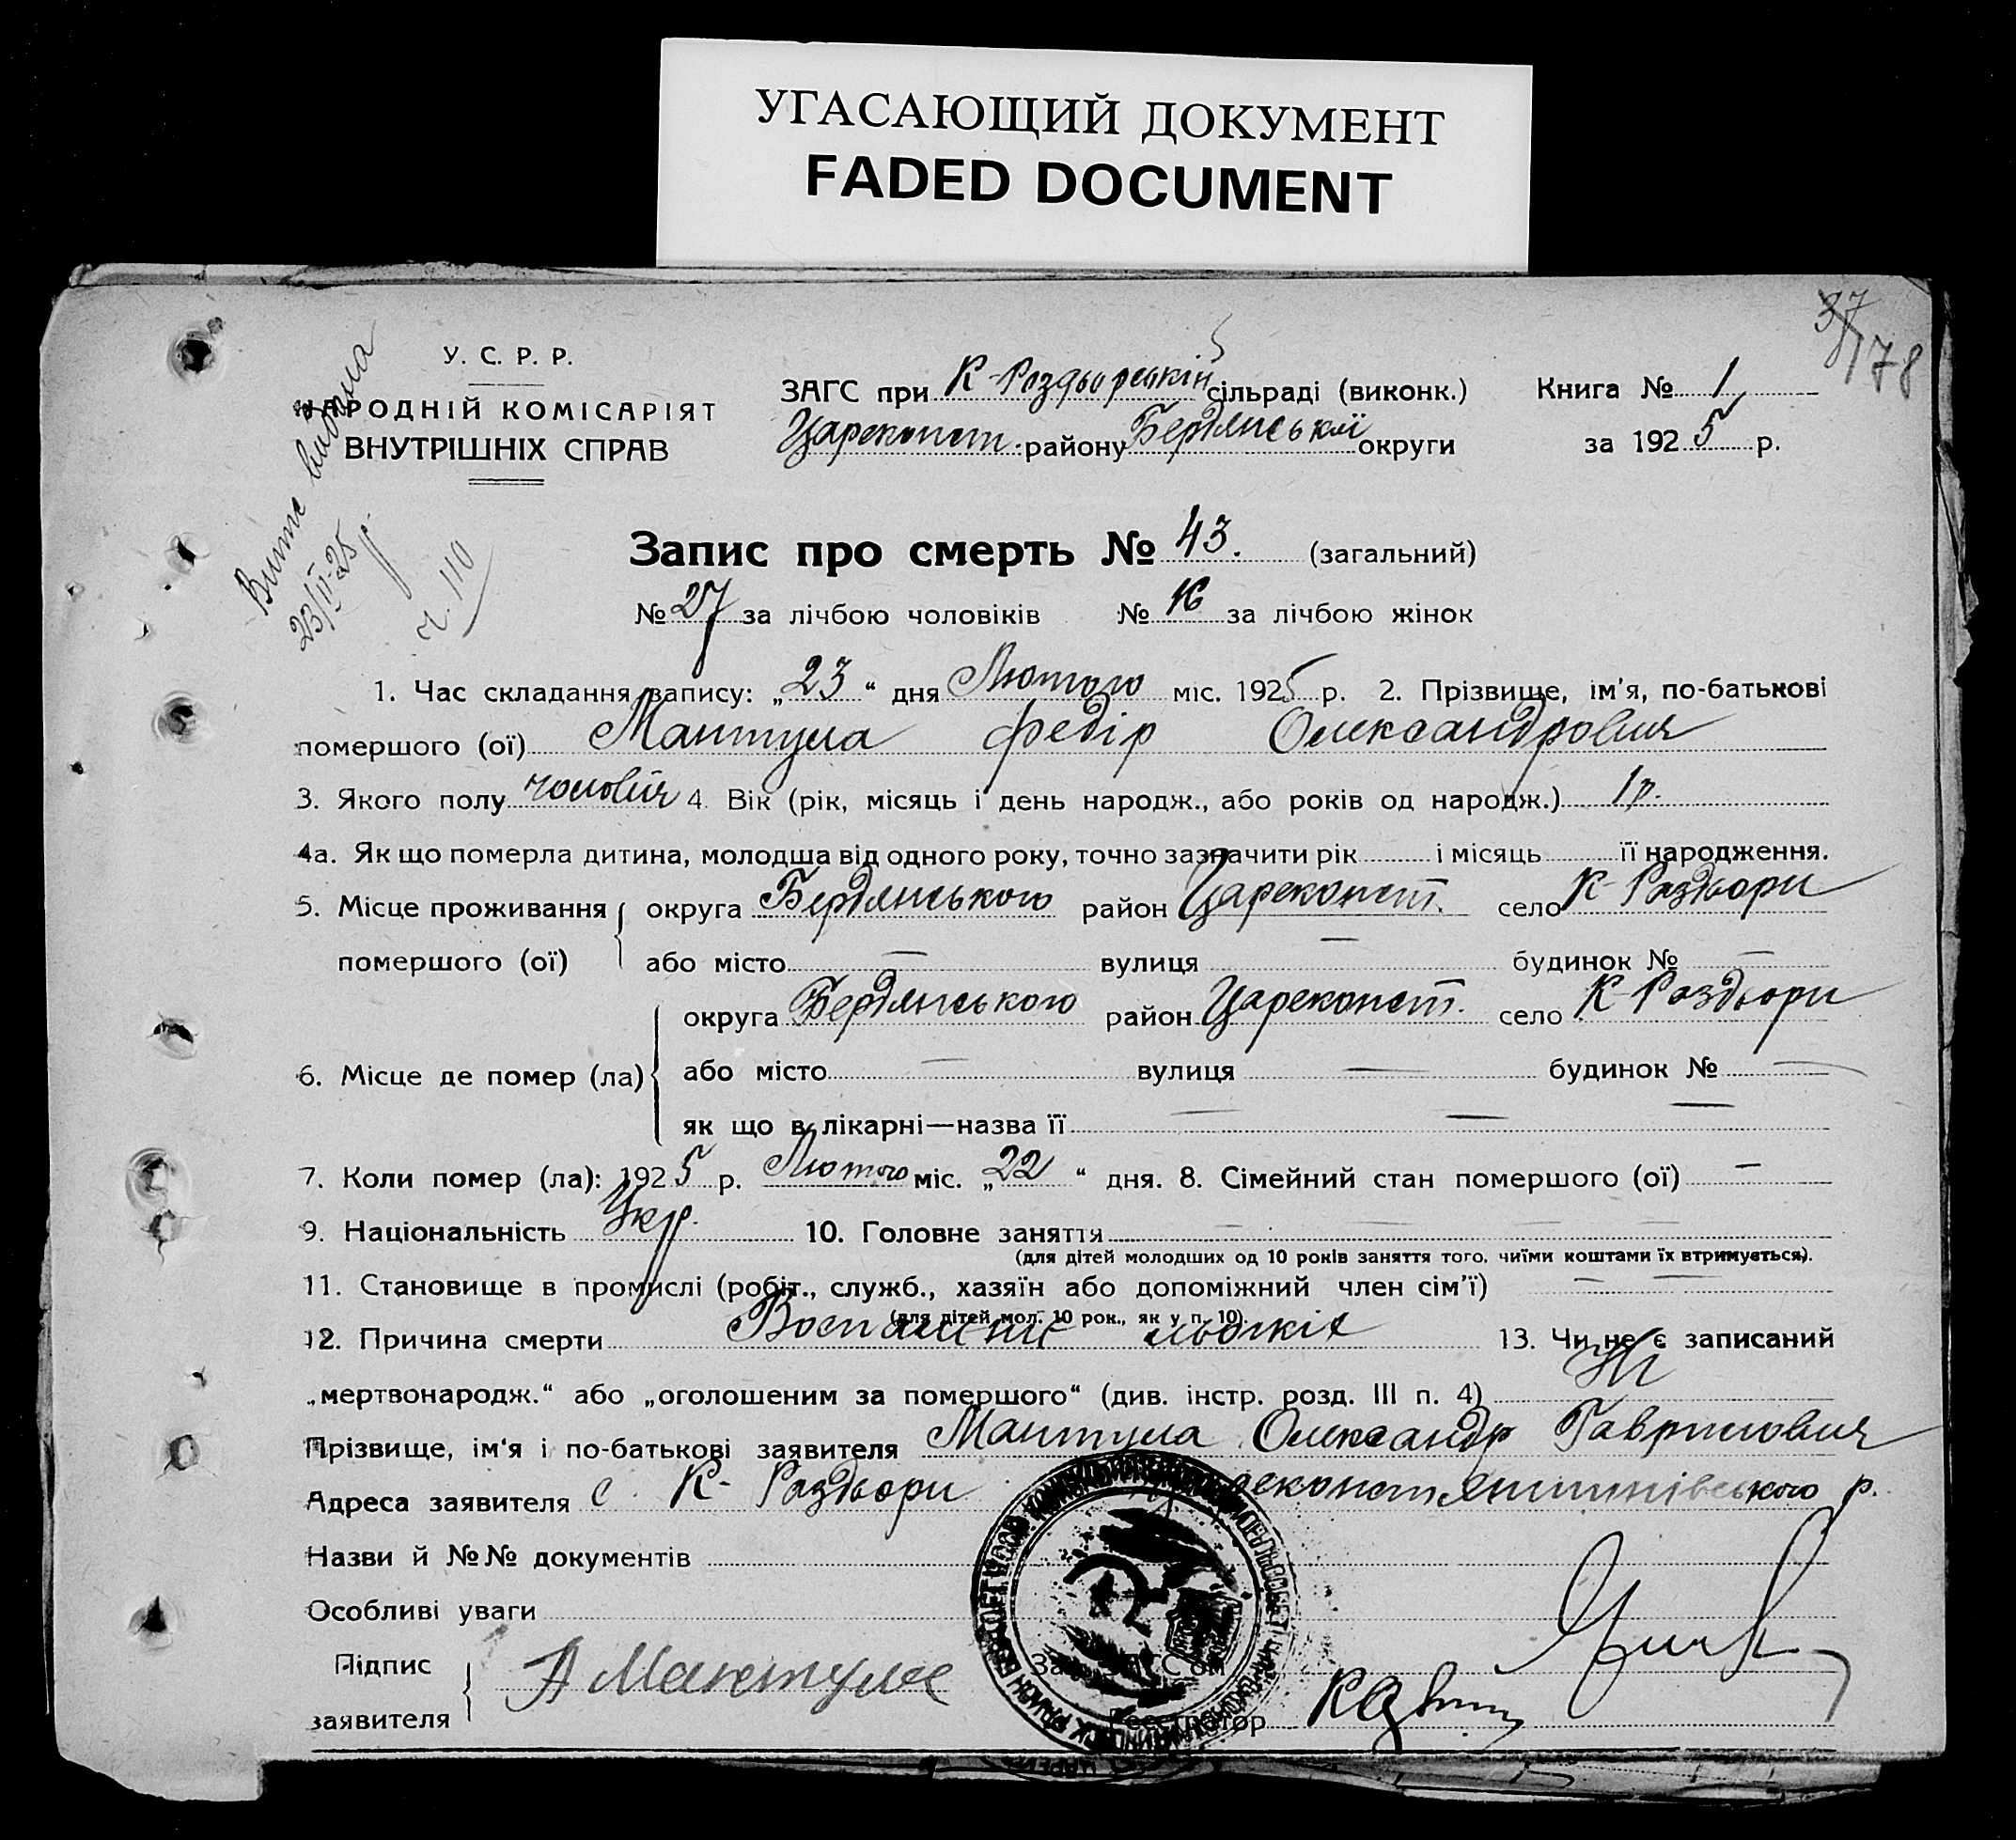 УГАСАЮЩИЙ ДОКУМЕНТ
FADED DOCUMENT
37
178
У. С. Р. Р.
НАРОДНІЙ КОМІСАРІЯТ
ВНУТРІШНІХ СПРАВ
ЗАГС при К-Роздьорській сільраді (виконк.)
Цареконст. району Бердянської округи
Книга № 1
за 1925 р.
видана
23/II-25 р.
ч. 110
Запис про смерть № 43. (загальний)
№ 27 за лічбою чоловіків № 16 за лічбою жінок
1. Час складання запису: „23“ дня Лютого міс. 1925 р. 2. Прізвище, ім'я, по-батькові
помершого (ої) Мантула Федір Олександровия
3. Якого полу чоловія 4. Вік (рік, місяць і день народж., або років од народж.) 1 р.
4а. Як що померла дитина, молодша від одного року, точно зазначити рік і місяць її народження.
5. Місце проживання помершого (ої) округа Бердянського район Цареконст. село К-Раздьори
або місто — вулиця — будинок № —
6. Місце де помер (ла) округа Бердянського район Цареконст. село К-Раздьори
або місто — вулиця — будинок № —
як що в лікарні—назва її — — —
7. Коли помер (ла): 1925 р. Лютого міс. „22“ дня. 8. Сімейний стан помершого (ої) —
9. Національність Укр. 10. Головне заняття — — — —
(для дітей молодших од 10 років заняття того, чиїми коштами їх втримується).
11. Становище в промислі (робіт., служб., хазяїн або допоміжний член сім'ї) — —
(для дітей мол. 10 рок., як у п. 10).
12. Причина смерти Воспаление льогкіх 13. Чи не є записаний
„мертвонародж.“ або „оголошеним за помершого“ (див. інстр. розд. III п. 4) Ні
Прізвище, ім'я і по-батькові заявителя Мантула Олександр Гаврилович
Адреса заявителя с. К-Раздьори Цареконстянтинівського р.
Назви й №№ документів
Особливі уваги
Підпис заявителя А Мантула
Зав. ЗАГС'ом
Реєстратор